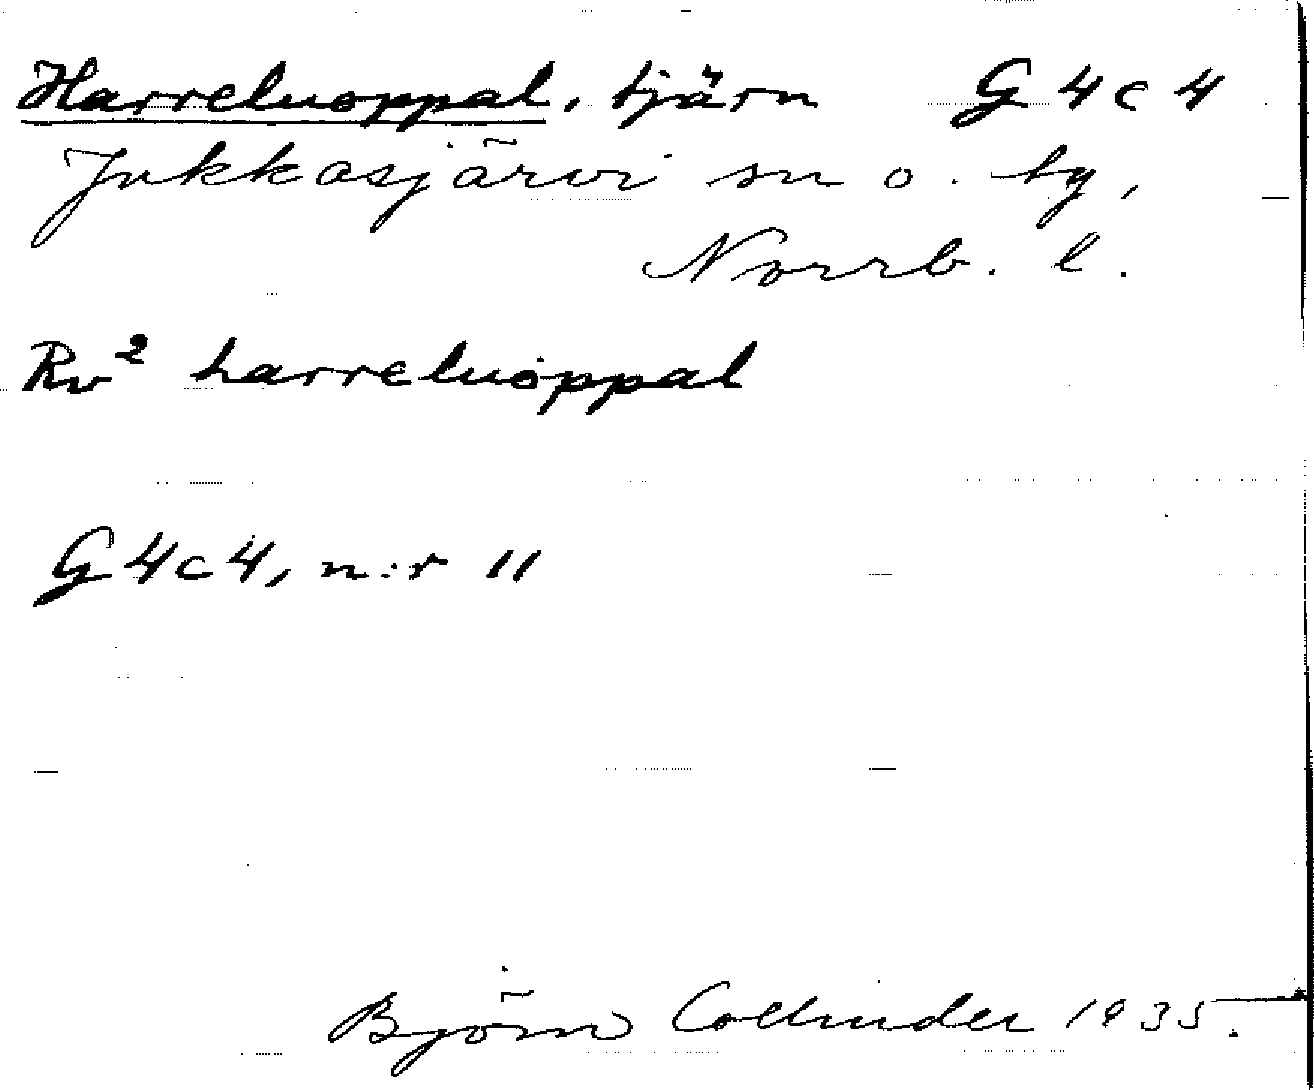 Harreluoppal, tjärn G 4 c 4
Jukkasjärvi sn o. by,
Norrb. l.
Rv² harreluoppal
G 4 c 4, n:r 11
Björn Collinder 1935.